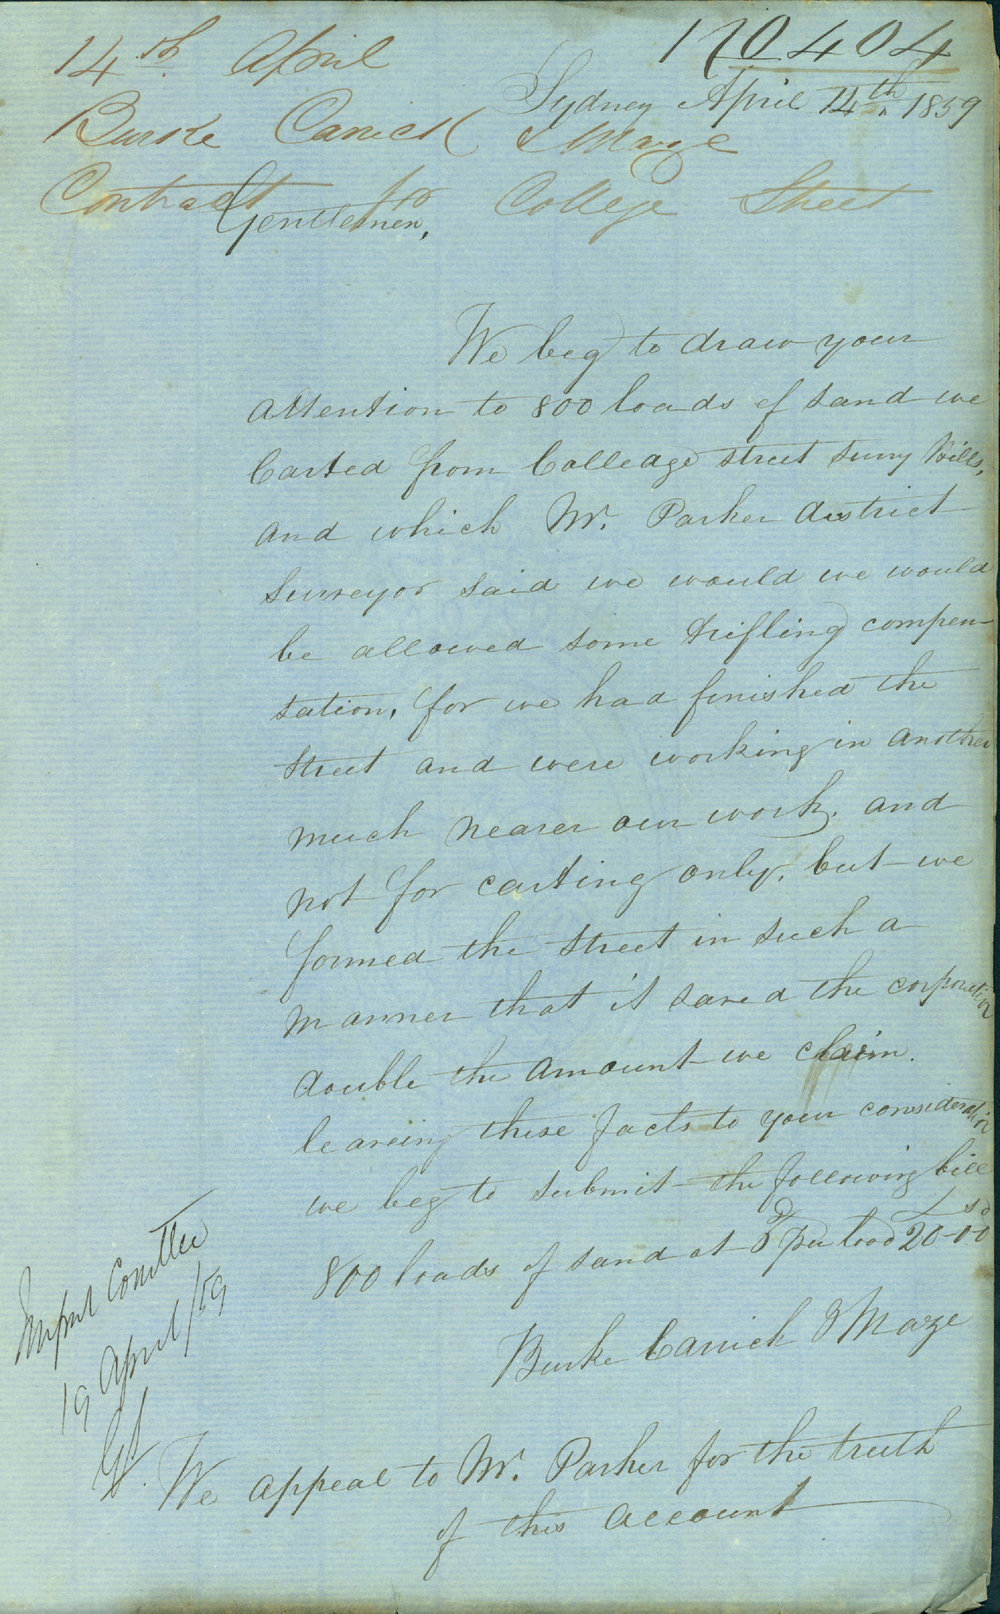 14th April
No 404
Sydney April 14th. 1859
Burke Carrick & Maze
Contract for College Street
Gentlemen,
We beg to draw your
attention to 800 loads of sand we
Carted from Colleage street Surry Hills,
and which Mr. Parker district
Surveyor said we would we would
be allowed some trifling compen-
sation, for we had finished the
street and were working in another
much nearer our work, and
not for carting only, but we
formed the street in such a
manner that it saved the corporation
double the amount we claim.
leaveing these facts to your consideration
we beg to submit the following bill
£ s d
800 loads of sand at 6d per load 20-0-0
Burke Carrick & Maze
19 April/59
We appeal to Mr. Parker for the truth
of this account